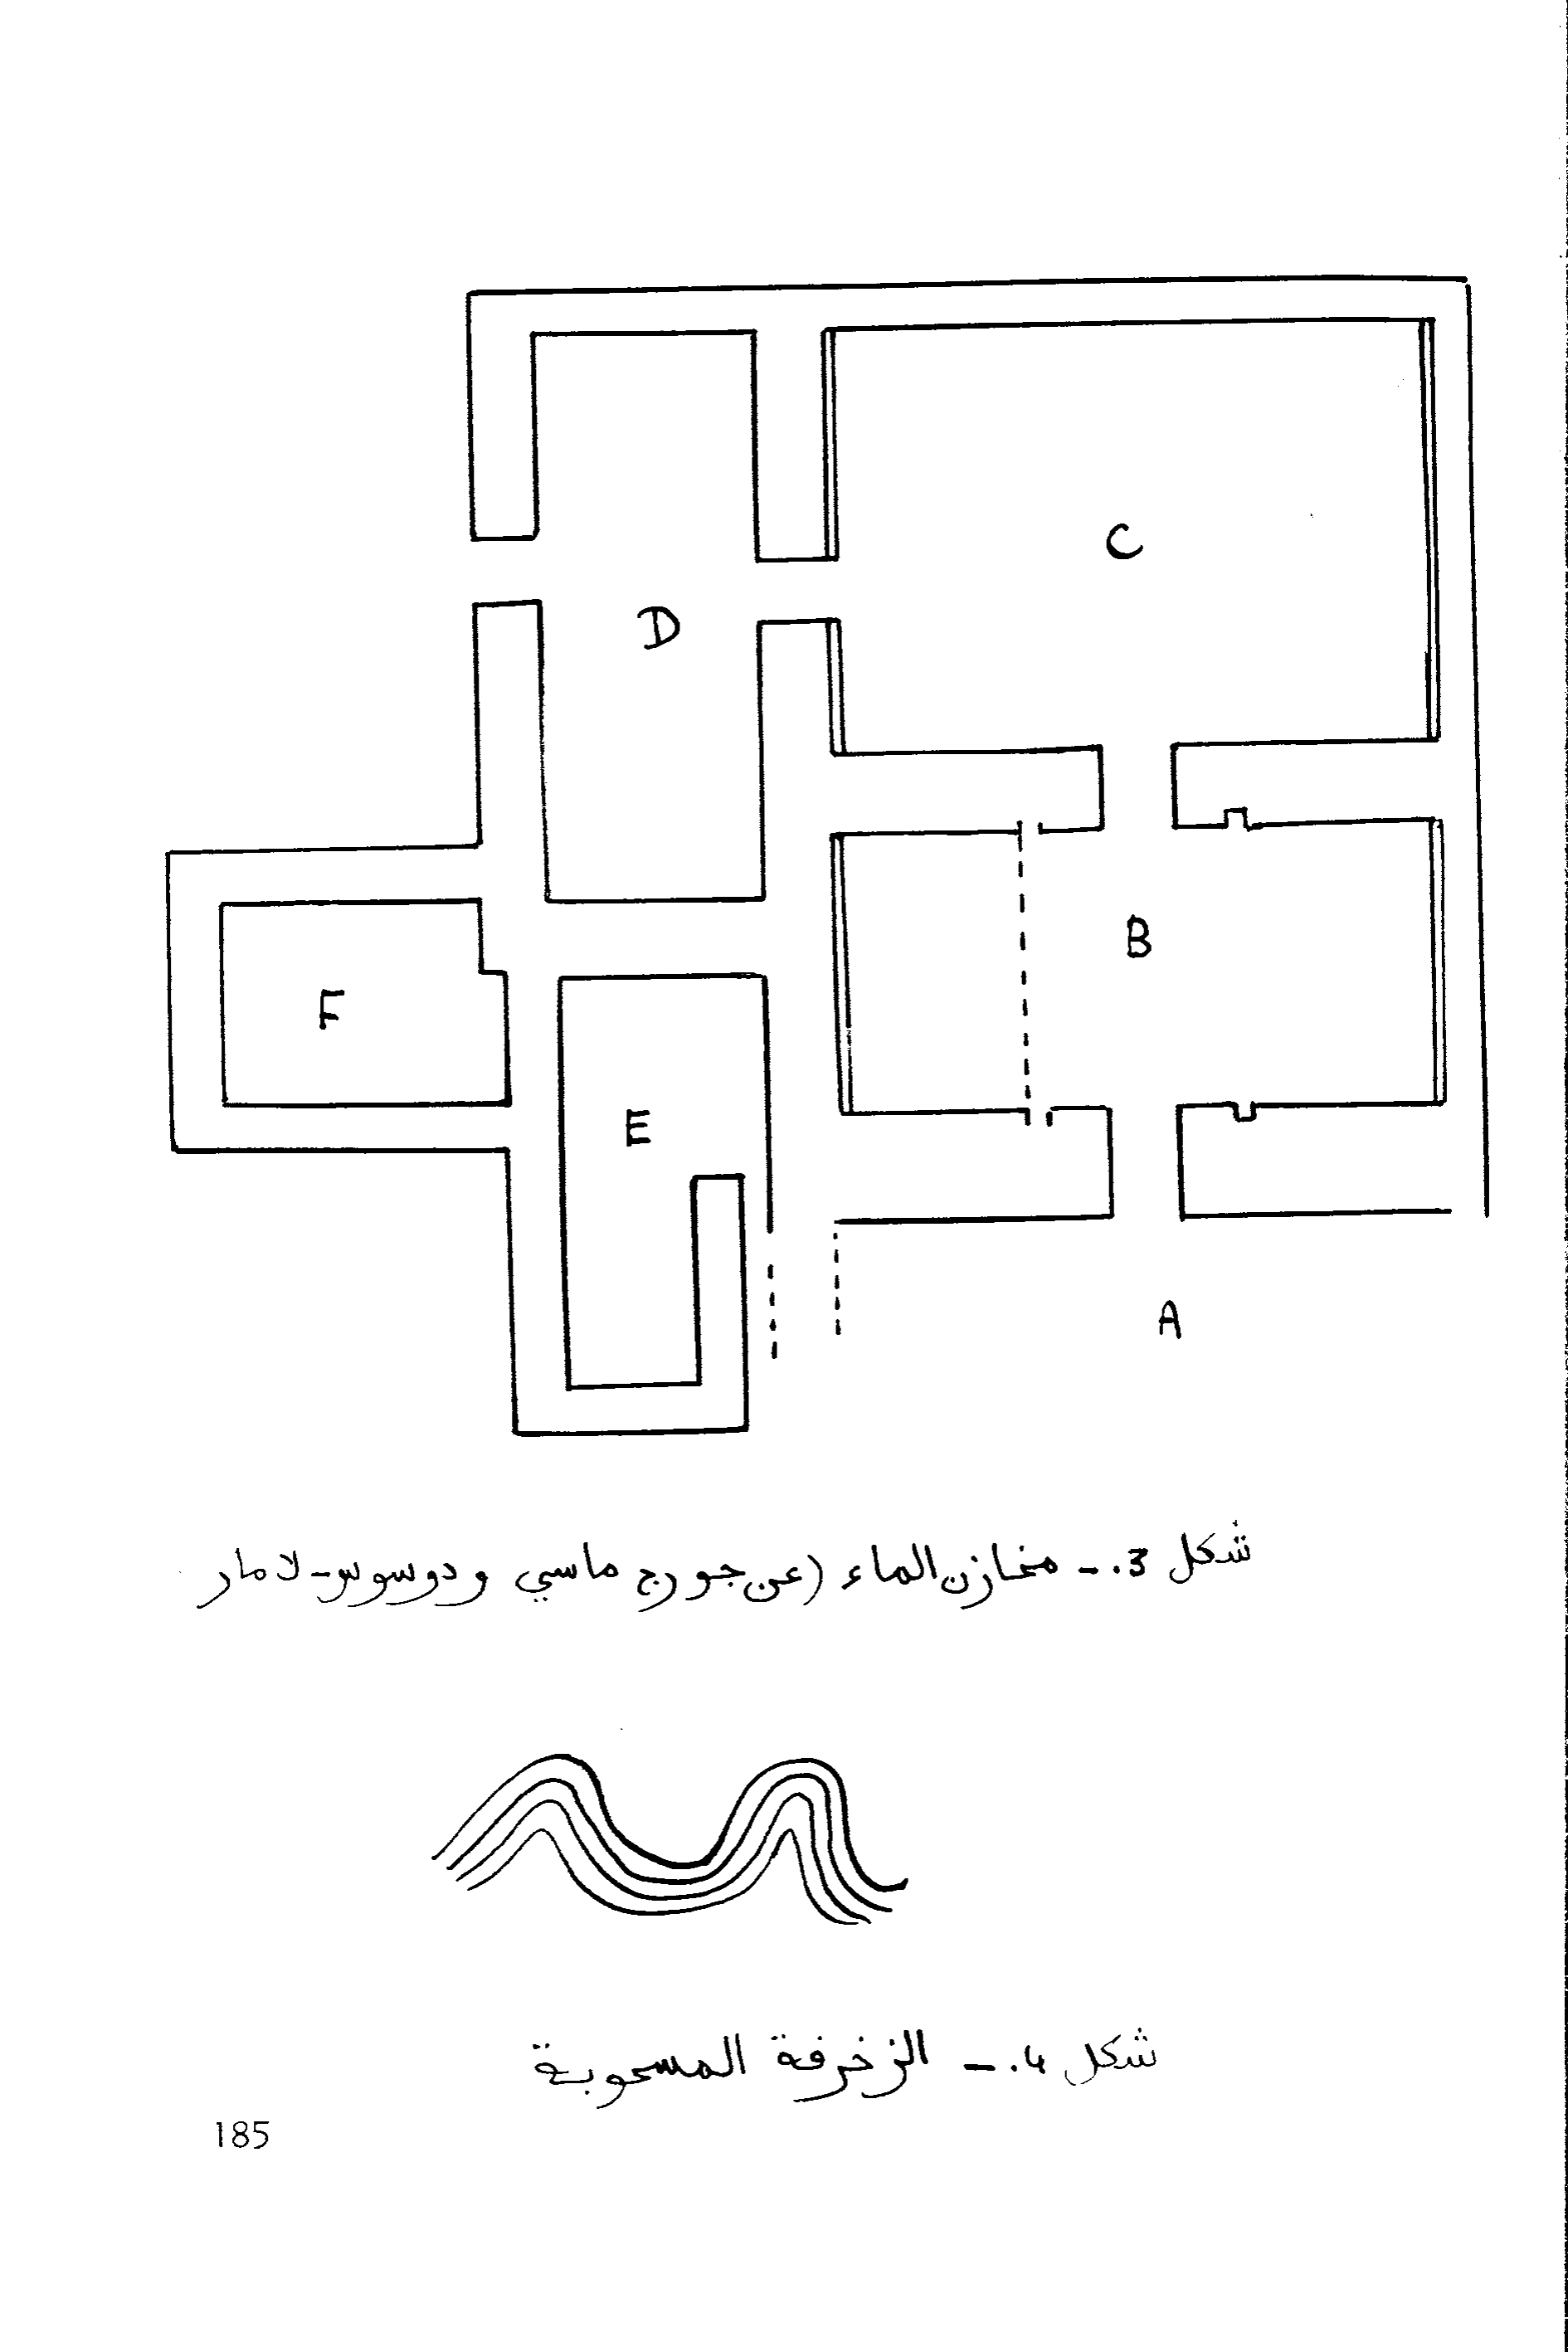 C
D
B
F
E
A
شكل 3.- مخازن الماء (عن جورج ماسي ودوسوس-لامار
شكل 4.- الزخرفة المسحوبة
185